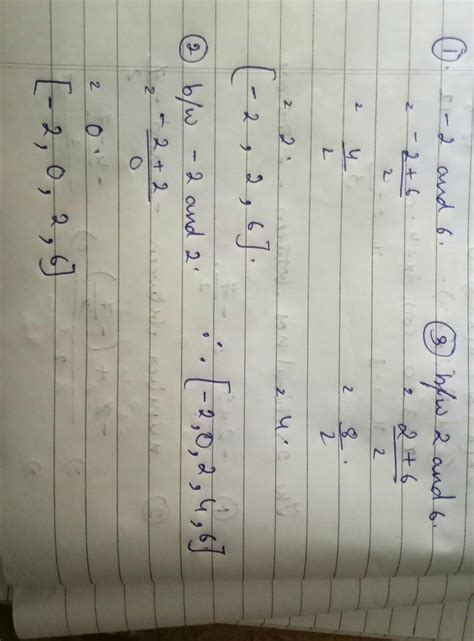 ① -2 and 6.
= -2+6
2
= 4
2
= 2.
[-2, 2, 6].
② b/w -2 and 2.
= -2+2
0
= 0.
[-2, 0, 2, 6]
③ b/w 2 and 6.
= 2+6
2
= 8.
2
= 4.
∴ [-2, 0, 2, 4, 6]